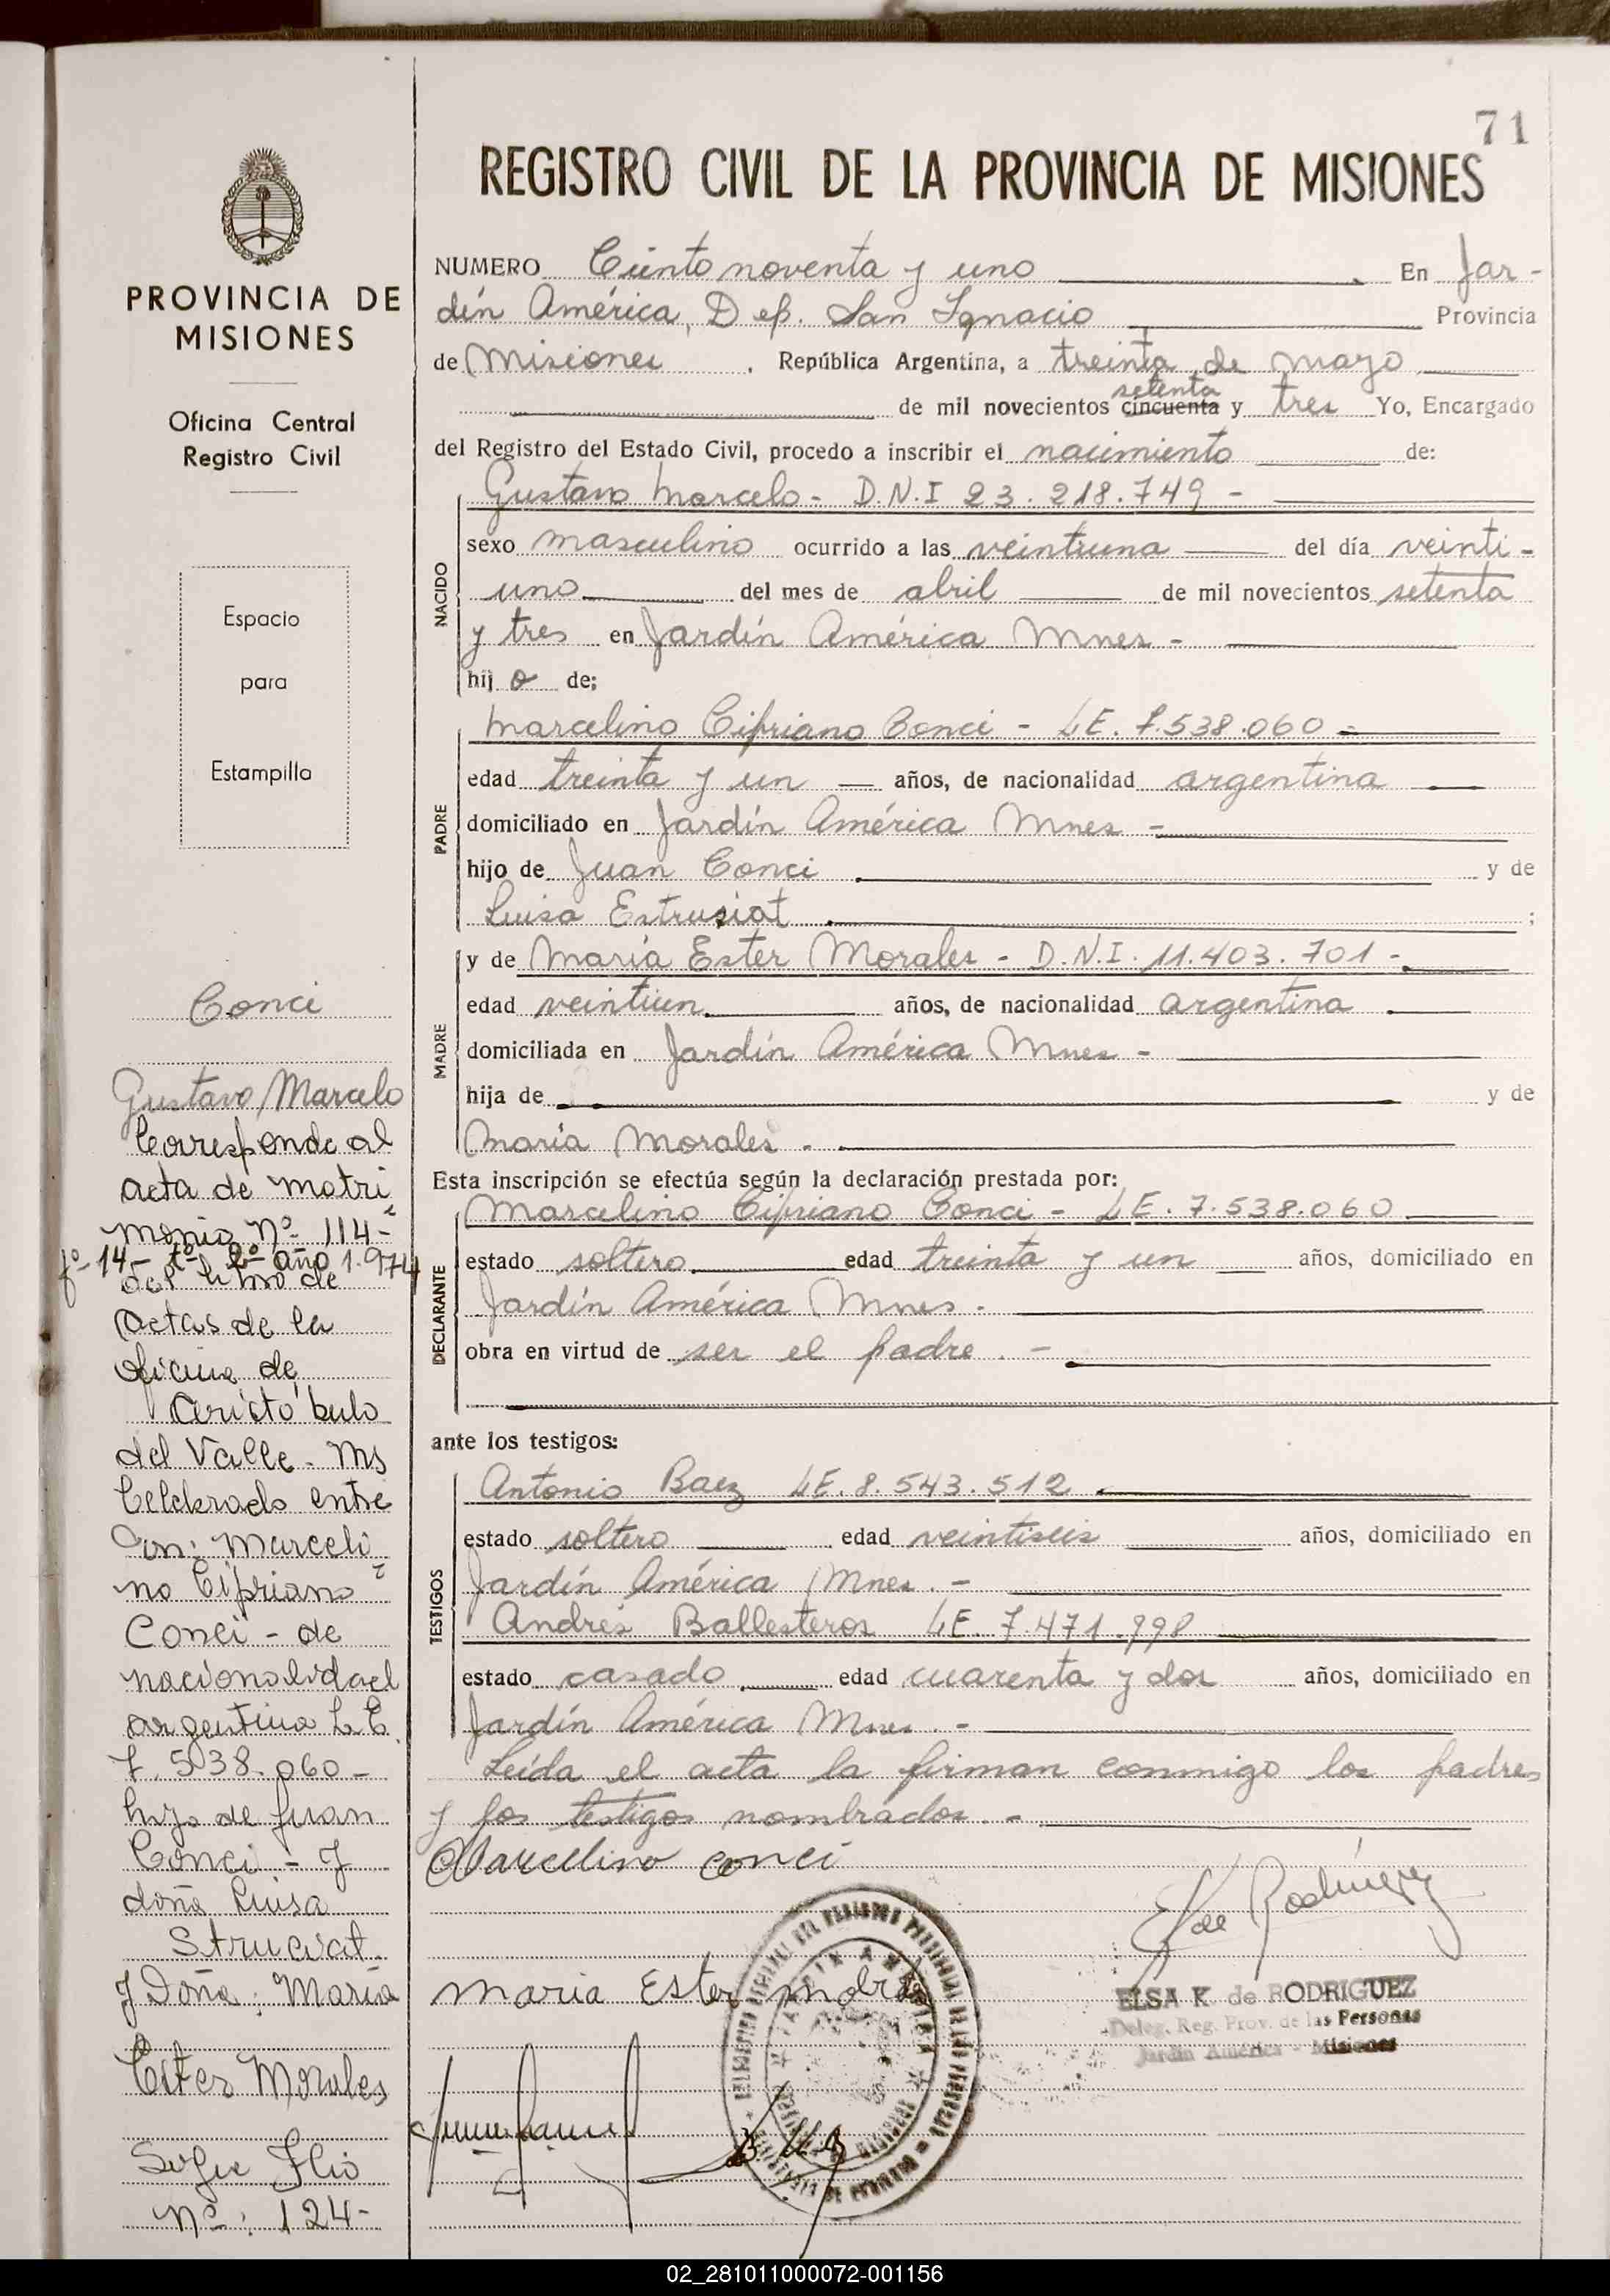 71
REGISTRO CIVIL DE LA PROVINCIA DE MISIONES
PROVINCIA DE
MISIONES
Oficina Central
Registro Civil
Espacio
para
Estampilla
Conci
Gustavo Marcelo
Corresponde al
acta de matri
monio Nº 114-
fº 14- tº 2º año 1.974
del libro de
actas de la
oficina de
Aristóbulo
del Valle - Ms
Celebrado entre
Don: Marceli
no Cipriano
Conci - de
nacionalidad
argentina L E.
7.538.060-
hijo de Juan
Conci - y
doña Luisa
Strusiat.
y Doña: María
Ester Morales
Sigue Flio
Nº: 124-
NUMERO Ciento noventa y uno En Jar-
dín América, Dep. San Ignacio Provincia
de Misiones . República Argentina, a treinta de mayo
setenta
de mil novecientos cincuenta y tres Yo, Encargado
del Registro del Estado Civil, procedo a inscribir el nacimiento de:
NACIDO
Gustavo Marcelo - D.N.I 23.218.749 -
sexo masculino ocurrido a las veintiuna del día veinti-
uno del mes de abril de mil novecientos setenta
y tres en Jardín América Mnes -
hij o de;
PADRE
Marcelino Cipriano Conci - LE. 7.538.060 -
edad treinta y un años, de nacionalidad argentina
domiciliado en Jardín América Mnes -
hijo de Juan Conci y de
Luisa Estrusiat ;
MADRE
y de María Ester Morales - D.N.I. 11.403.701 -
edad veintiún años, de nacionalidad argentina
domiciliada en Jardín América Mnes -
hija de y de
María Morales .
Esta inscripción se efectúa según la declaración prestada por:
DECLARANTE
Marcelino Cipriano Conci - LE. 7.538.060
estado soltero edad treinta y un años, domiciliado en
Jardín América Mnes.
obra en virtud de ser el padre . -
ante los testigos:
TESTIGOS
Antonio Baez LE. 8.543.512
estado soltero edad veintiseis años, domiciliado en
Jardín América Mnes. -
Andrés Ballesteros LE. 7.471.998
estado casado edad cuarenta y dos años, domiciliado en
Jardín América Mnes. -
Leída el acta la firman conmigo los padres
y los testigos nombrados. -
Marcelino conci
E K de Rodriguez
Maria Ester
ELSA K de RODRIGUEZ
Deleg. Reg. Prov. de las Personas
Jardín América - Misiones
02_281011000072-001156